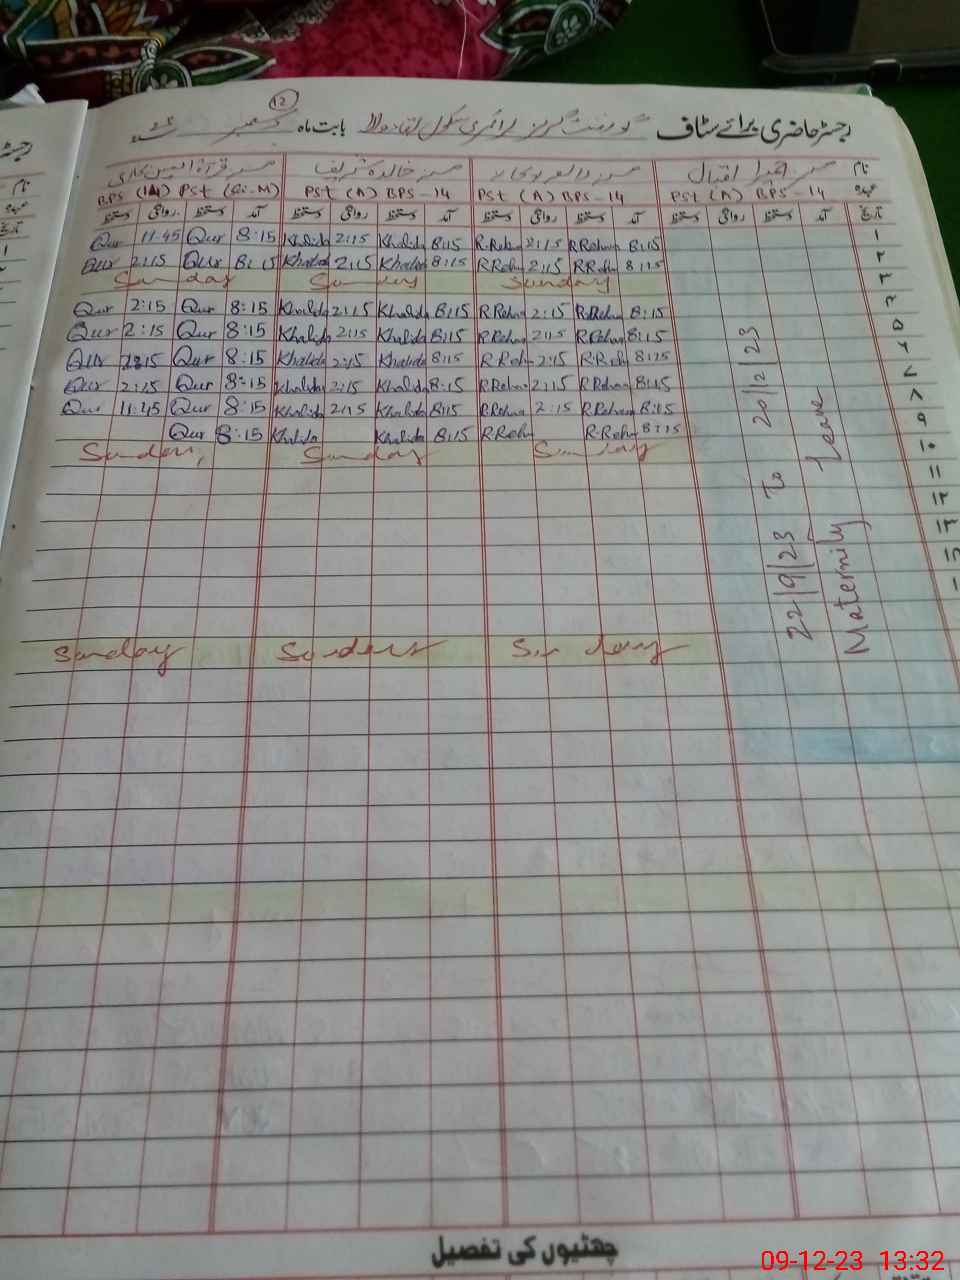 12
رجسٹر حاضری برائے سٹاف گورنمنٹ گرلز پرائمری سکول بابت ماہ دسمبر ۲۳
نام مسز اقبال مسز مسز خالدہ شریف مسز قرۃ العین
عہدہ PST (A) BPS-14 PST (A) BPS-14 PST (A) BPS-14 BPS (14) PST
تاریخ آمد دستخط روانگی دستخط آمد دستخط روانگی دستخط آمد دستخط روانگی دستخط آمد دستخط روانگی دستخط
Qur 11:45 Qur 8:15 Khalida 2:15 Khalida 8:15 R.Rehm 2:15 R.Rehm 8:15 ۱
Qur 2:15 Qur 8:15 Khalida 2:15 Khalida 8:15 R.Rehm 2:15 R.Rehm 8:15 ۲
Sunday Sunday Sunday ۳
Qur 2:15 Qur 8:15 Khalida 2:15 Khalida 8:15 R.Rehm 2:15 R.Rehm 8:15 ۴
Qur 2:15 Qur 8:15 Khalida 2:15 Khalida 8:15 R.Rehm 2:15 R.Rehm 8:15 ۵
Qur 2:15 Qur 8:15 Khalida 2:15 Khalida 8:15 R.Rehm 2:15 R.Rehm 8:15 ۶
Qur 2:15 Qur 8:15 Khalida 2:15 Khalida 8:15 R.Rehm 2:15 R.Rehm 8:15 ۷
Qur 11:45 Qur 8:15 Khalida 2:15 Khalida 8:15 R.Rehm 2:15 R.Rehm 8:15 ۸
Qur 8:15 Khalida Khalida 8:15 R.Rehm R.Rehm 8:15 ۹
Sunday Sunday Sunday ۱۰
۱۱
۱۲
۱۳
Sunday Sunday Sunday
22/9/23 To 20/12/23
Maternity Leave
چھٹیوں کی تفصیل
09-12-23 13:32